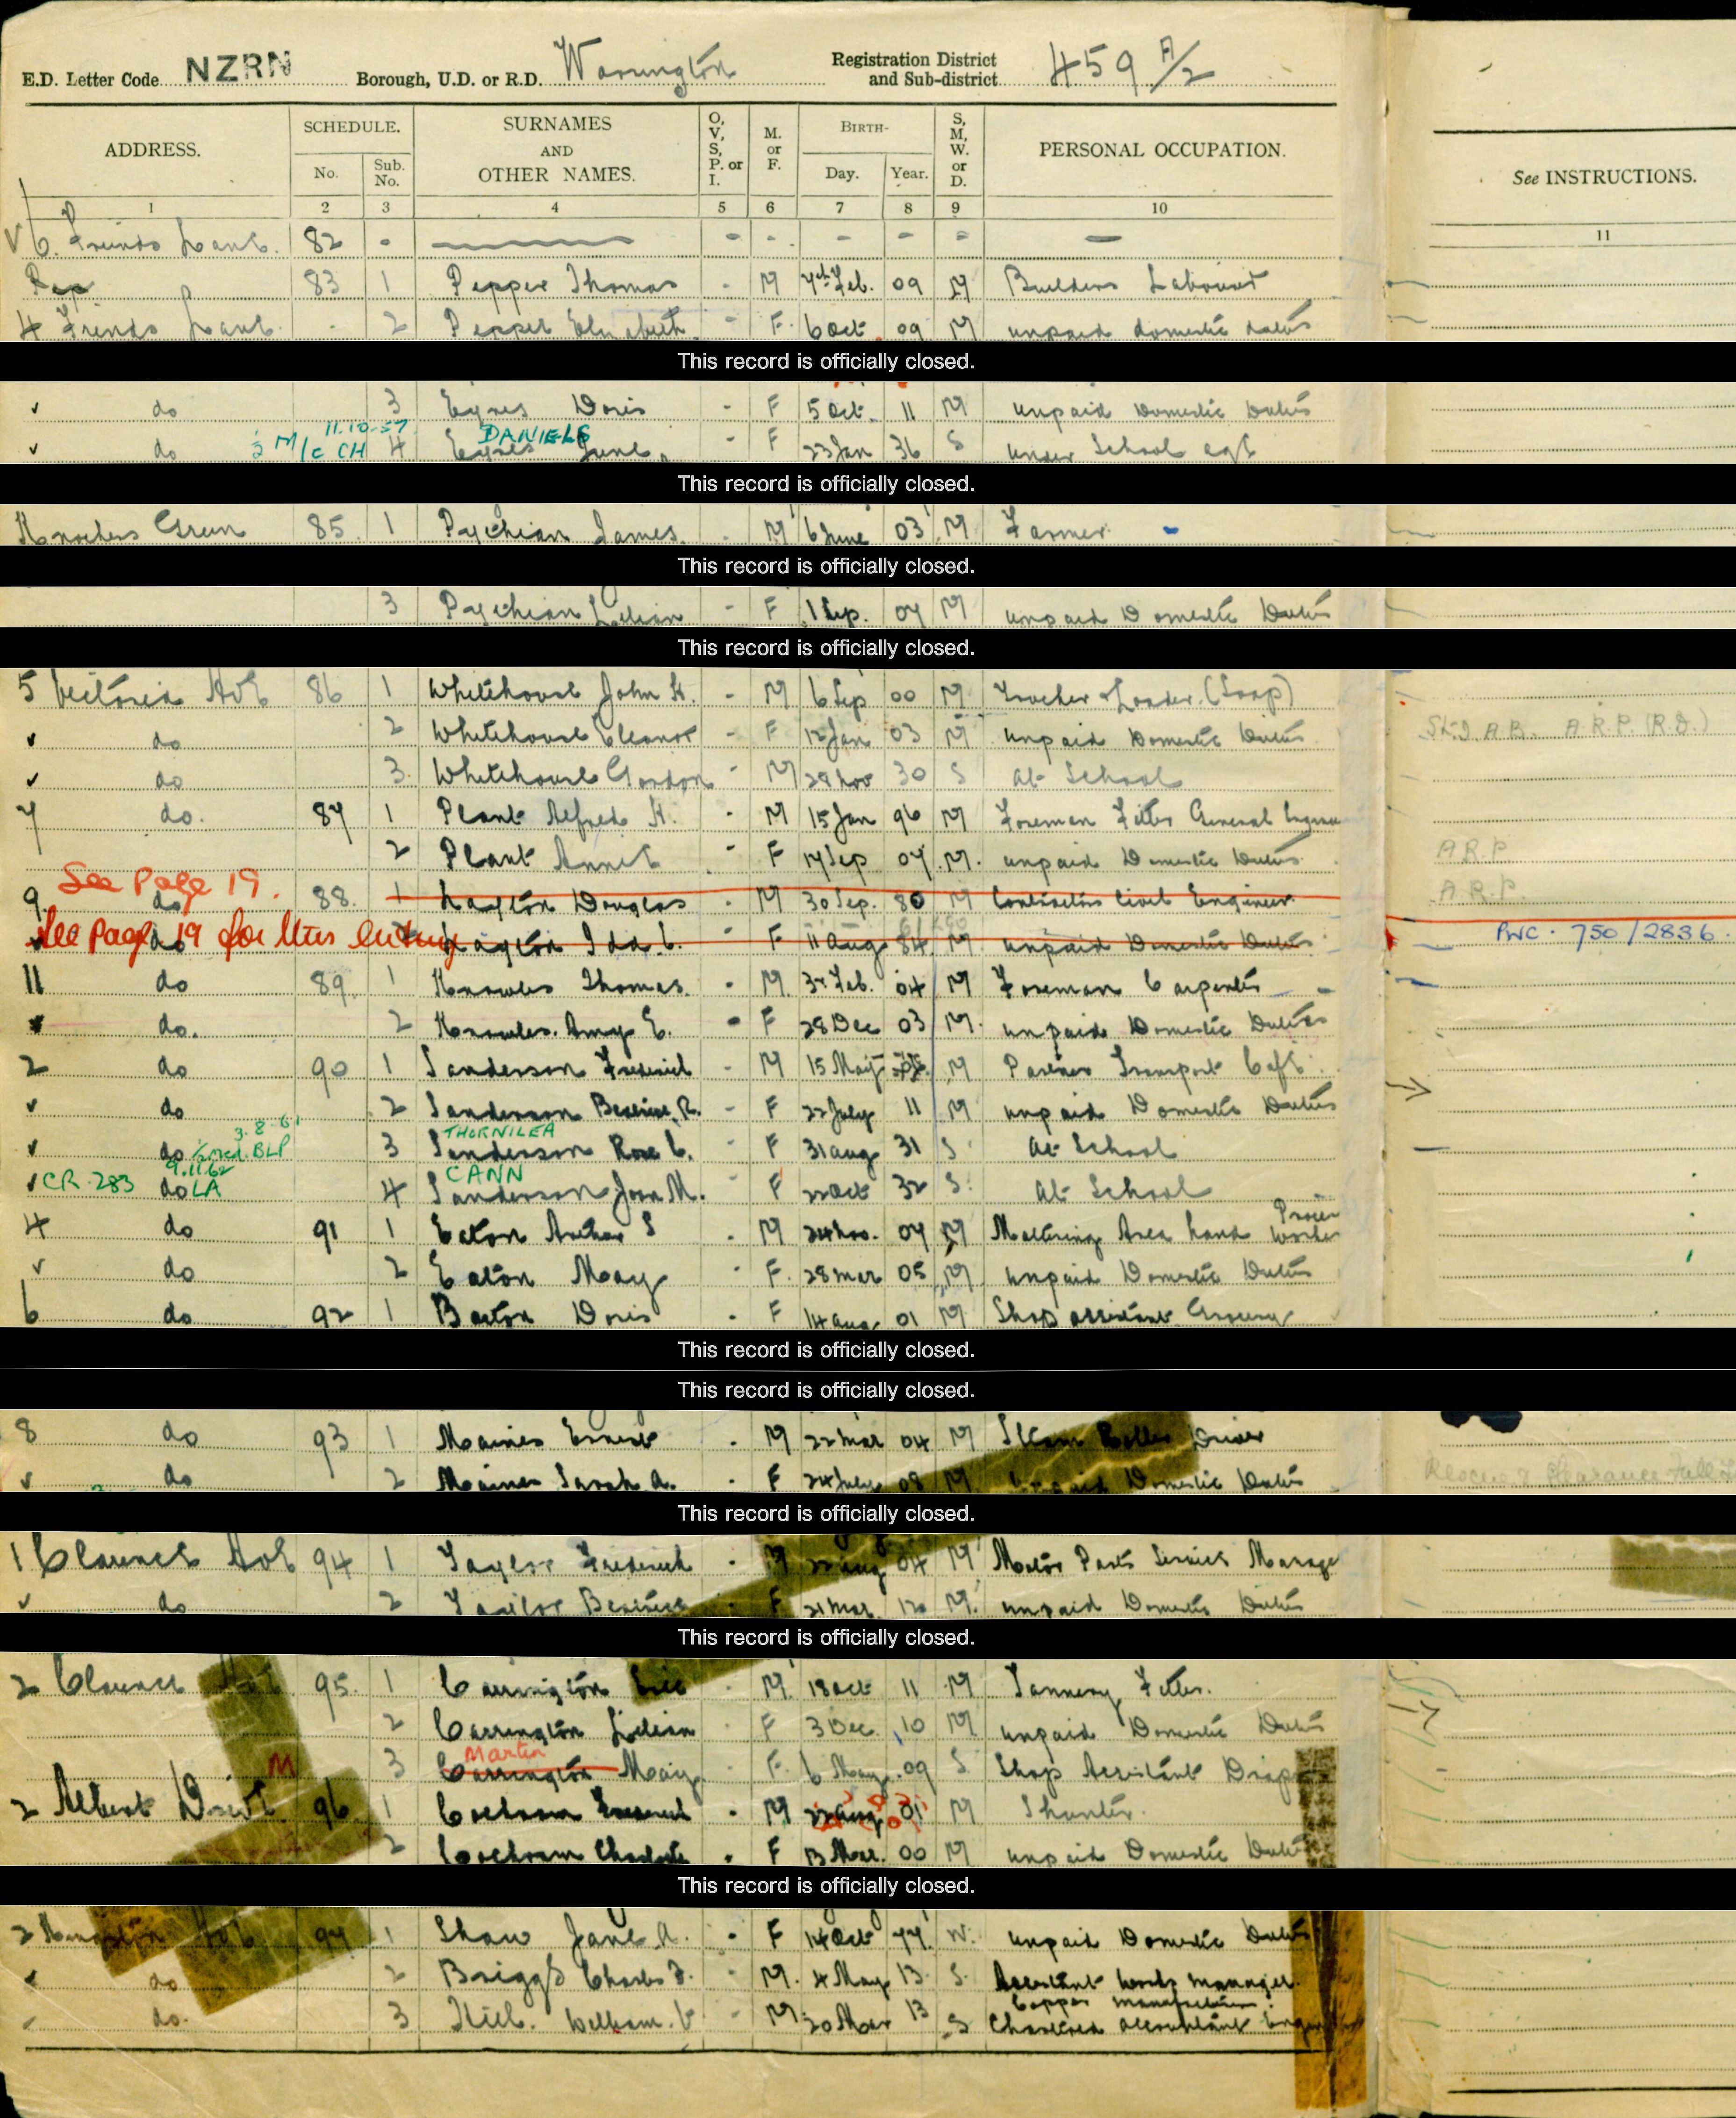 E.D. Letter Code NZRN Borough, U.D. or R.D. Warrington Registration District and Sub-district 459 A/2
ADDRESS. SCHEDULE. No. Sub. No. SURNAMES AND OTHER NAMES. O, V, S, P. or I. M. or F. BIRTH- Day. Year. S, M, W. or D. PERSONAL OCCUPATION. See INSTRUCTIONS.
1 2 3 4 5 6 7 8 9 10 11
6 Friends Lane 82 - - - - - - -
83 1 Pepper Thomas - M 7th Feb. 09 M Builders Labourer
4 Friends Lane - 2 Pepper Elizabeth - F 6 Oct 09 M unpaid domestic duties
This record is officially closed.
do 3 Eyres Doris - F 5 Oct 11 M unpaid Domestic Duties
11.10.57 DANIELS
do M/c CH 4 Eyres June - F 23 Jan 36 S under School age
This record is officially closed.
Knockers Green 85 1 James M 6 June 03 M Farmer -
This record is officially closed.
3 Lilian - F 1 Sep. 07 M unpaid Domestic Duties
This record is officially closed.
5 Victoria Ave 86 1 Whitehouse John H. - M 6 Sep 00 M Trucker & Loader (Soap)
do 2 Whitehouse Eleanor - F 12 Jan 03 M unpaid Domestic Duties St J A.B. A.R.P. (R.D.)
do 3 Whitehouse Gordon - M 28 Nov 30 S at School
7 do. 87 1 Plant Alfred H. - M 15 Jan 96 M Foreman Fitter General
2 Plant Annie - F 17 Sep 07 M. unpaid Domestic Duties A.R.P
See Page 19.
9 do 88. 1 Layton Douglas - M 30 Sep. 80 M Contractors Civil Engineer A.R.P.
See page 19 for this entry
do Layton Ida - F 11 Aug 84 M unpaid Domestic Duties PWC. 750/2836.
11 do 89. 1 Knowles Thomas. - M. Feb. 04 M Foreman Carpenter -
do. 2 Knowles. Amy E. - F 28 Dec 03 M. unpaid Domestic Duties
2 do 90 1 Sanderson Frederick - M 15 May M Partner Transport
do 2 Sanderson Beatrice R. - F 22 July 11 M unpaid Domestic Duties
3.8.61 THORNILEA
do BLP 3 Sanderson Rose C. F 31 Aug 31 S At School
9.11.62 CANN
CR.283 do LA 4 Sanderson Joan M. F 22 Oct 32 S. At School
4 do 91 1 Eaton Arthur S - M 24 Nov. 07 M Area hand Process Worker
do 2 Eaton May - F. 28 Mar 05 M unpaid Domestic Duties
6 do 92 1 Barton Doris - F 14 Aug 01 M Shop assistant Grocery
This record is officially closed.
This record is officially closed.
8 do 93 1 Maines Ernest - M 22 Mar 04 M Steam Roller Driver
do 2 Maines Sarah A. - F 24 July 08 M unpaid Domestic Duties Rescue & Clearance
This record is officially closed.
1 Clarence Ave 94 1 Taylor Frederick - M 22 Aug 04 M Motor Parts Service Manager
do 2 Taylor Beatrice - F 21 Mar. M. unpaid Domestic Duties
This record is officially closed.
2 Clarence Ave 95. 1 Carrington Eric - M. 18 Oct 11 M Tannery Fitter.
2 Carrington Lilian - F 3 Dec. 10 M unpaid Domestic Duties
Martin
M 3 Carrington Mary - F. 6 May 09 S Shop Assistant
2 Albert Drive 96 1 Cochram Frederick - M 22 Aug 01 M Shunter.
2 Cochram Charlotte - F 13 Mar. 00 M unpaid Domestic Duties
This record is officially closed.
2 Kingston Ave 97 1 Shaw Jane A. - F 14 Oct 77. W. unpaid Domestic Duties
do 2 Briggs Charles F. - M. 4 May 13. S. Assistant works manager
Copper manufacturer.
do. 3 William. - M 20 Mar 13 S Chartered accountant